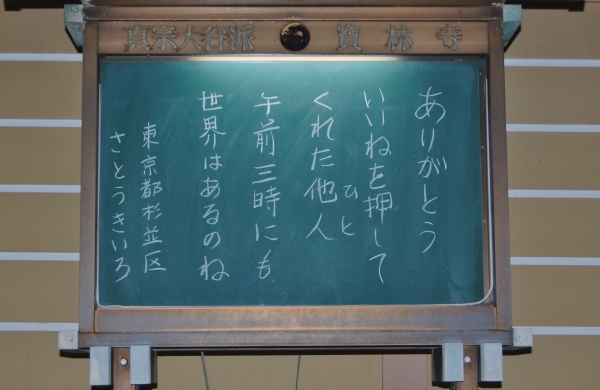 真宗大谷派 寳林寺
ありがとう
いいねを押して
くれた他人
ひと
午前三時にも
世界はあるのね
東京都杉並区
さとうきいろ